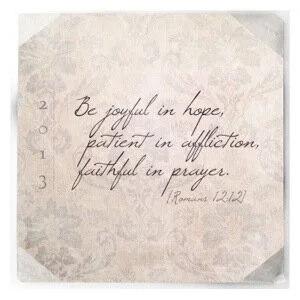 2013
Be joyful in hope,
patient in affliction,
faithful in prayer.
[Romans 12:12]